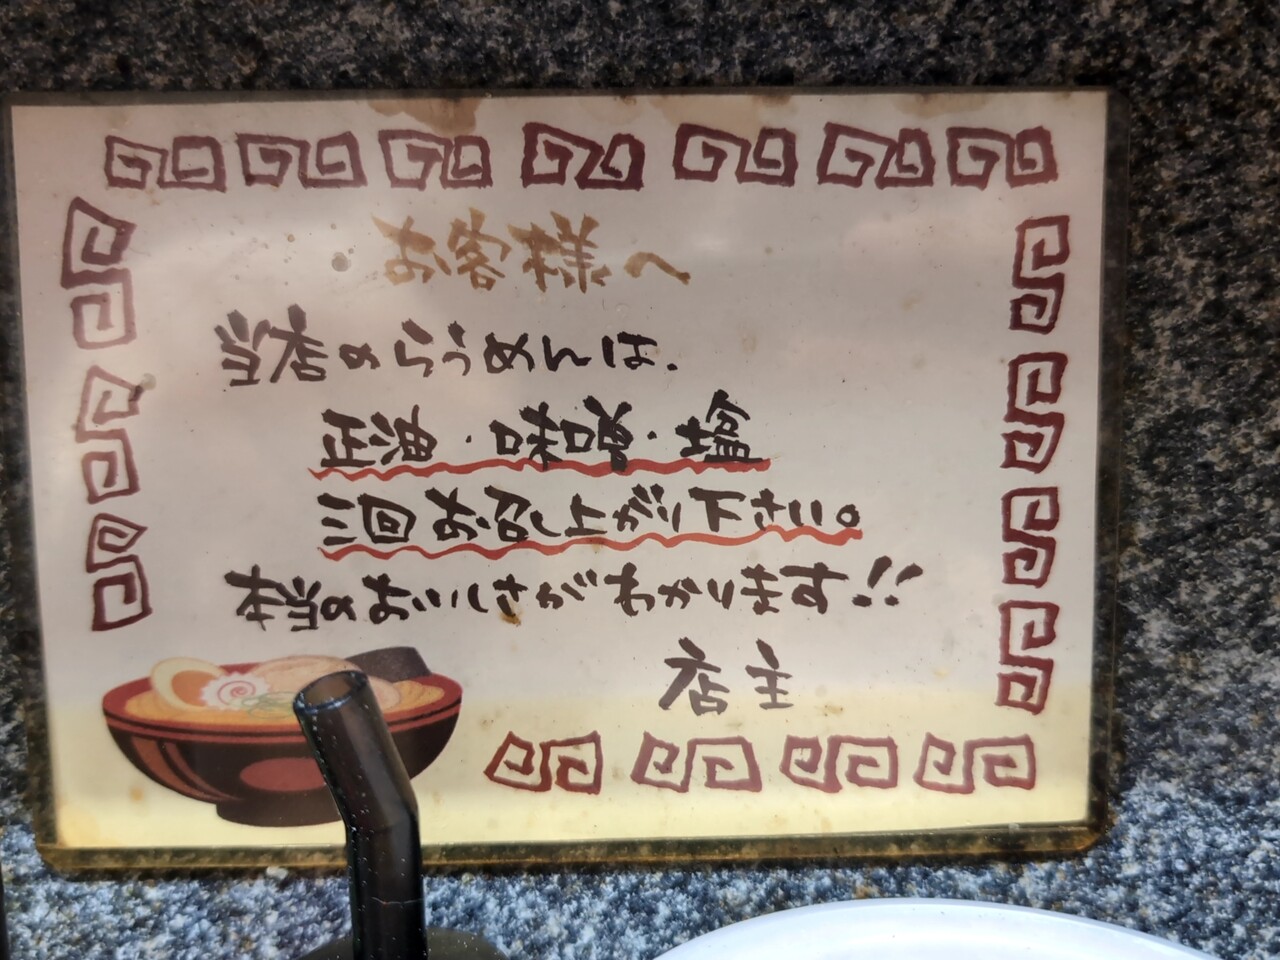 お客様へ
当店のらぅめんは、
正油・味噌・塩
三回お召し上がり下さい。
本当のおいしさがわかります!!
店主